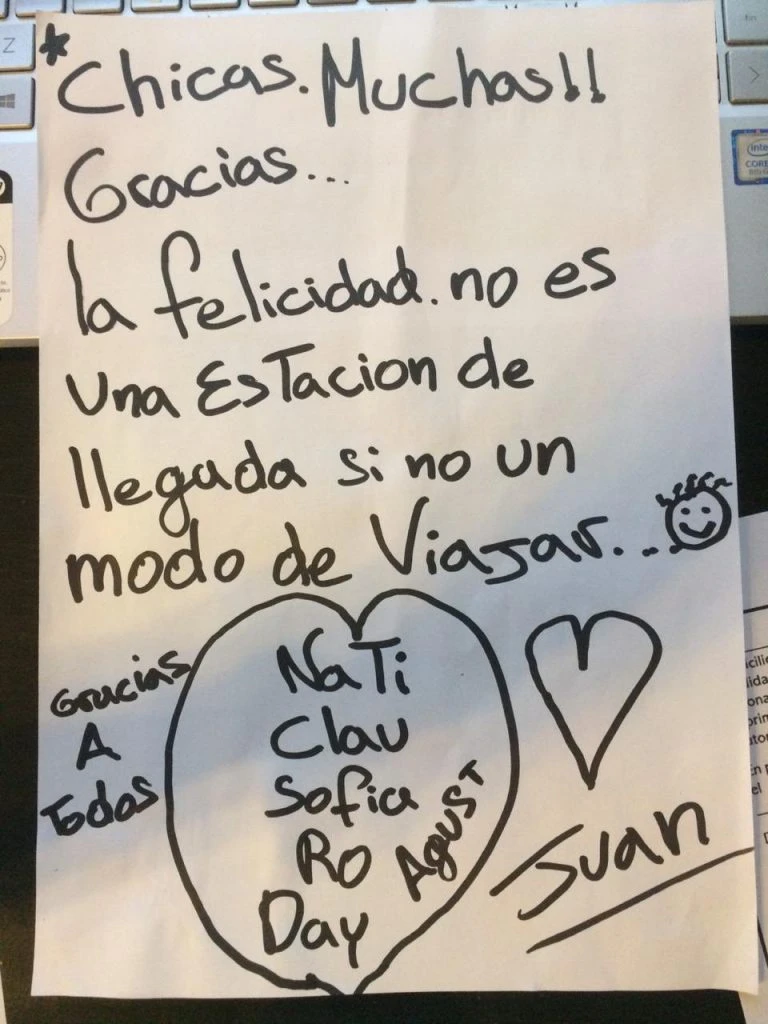 *Chicas. Muchas!!
Gracias...
la felicidad. no es
una Estacion de
llegada si no un
modo de Viajar...
Gracias
A
Todos
NaTi
Clau
Sofia
Ro
Agust
Day
Juan
Z
fin
intel
CORE